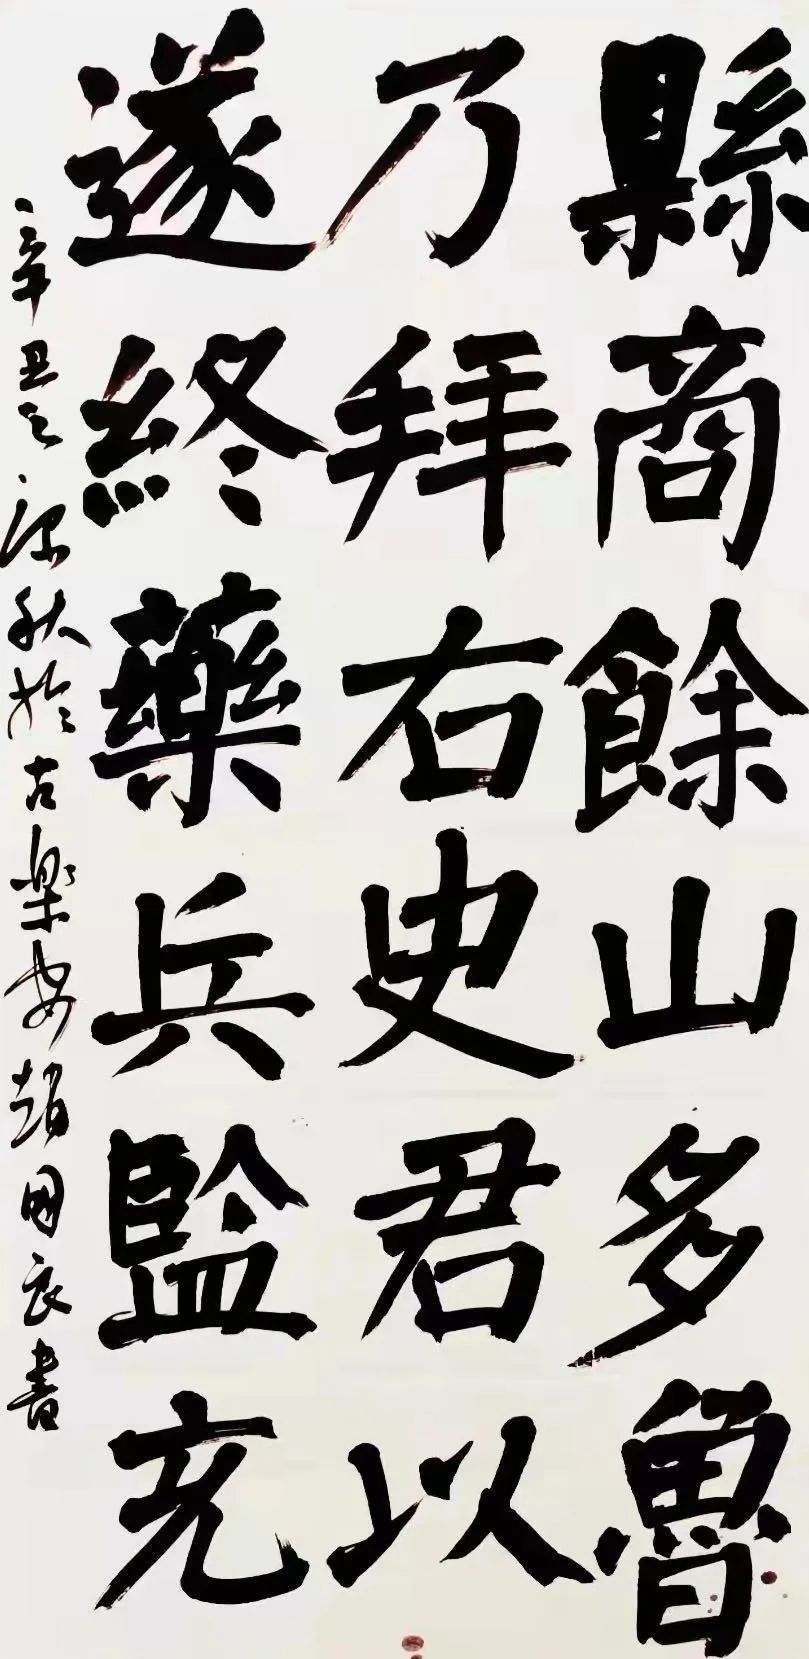 縣商餘山多魯
乃拜右史君以
遂終藥兵監充
辛丑之深秋於古樂安趙國良書